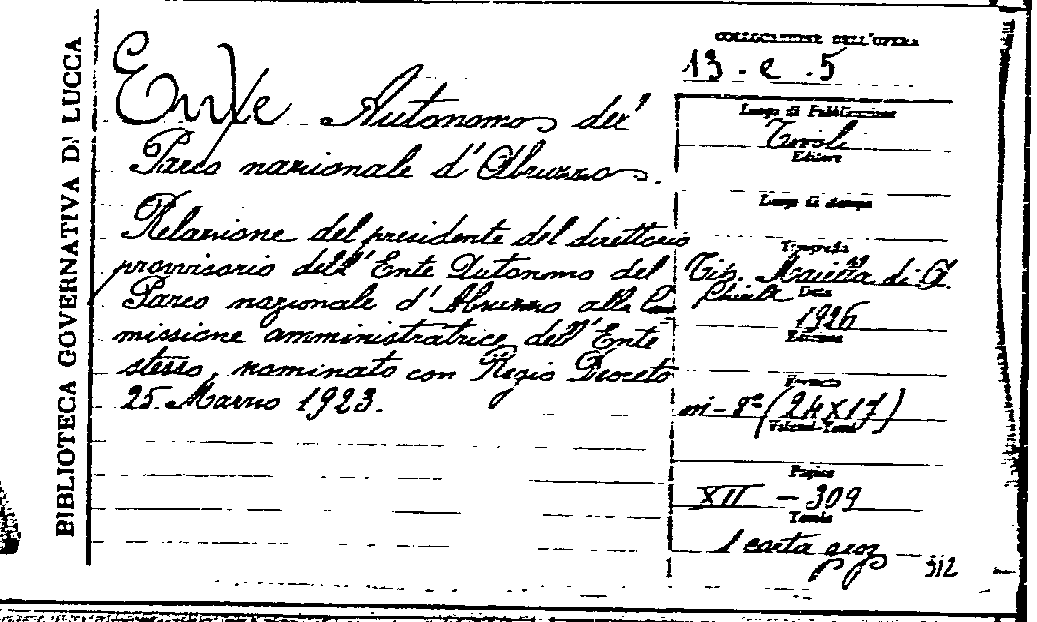 BIBLIOTECA GOVERNATIVA DI LUCCA
Ente Autonomo del
Parco nazionale d'Abruzzo.
Relazione del presidente del direttorio
provvisorio dell'Ente Autonomo del
Parco nazionale d'Abruzzo alla Com
missione amministratrice dell'Ente
stesso, nominato con Regio Decreto
25 Marzo 1923.
COLLOCAZIONE DELL'OPERA
13 - e . 5
Luogo di Pubblicazione
Tivoli
Editore
Luogo di stampa
Tipografia
Tip. Maiella di A.
Data
1926
Edizione
Formato
in-8º (24x17)
Volumi-Tomi
Pagine
XII - 309
Tavole
1 carta geog
312